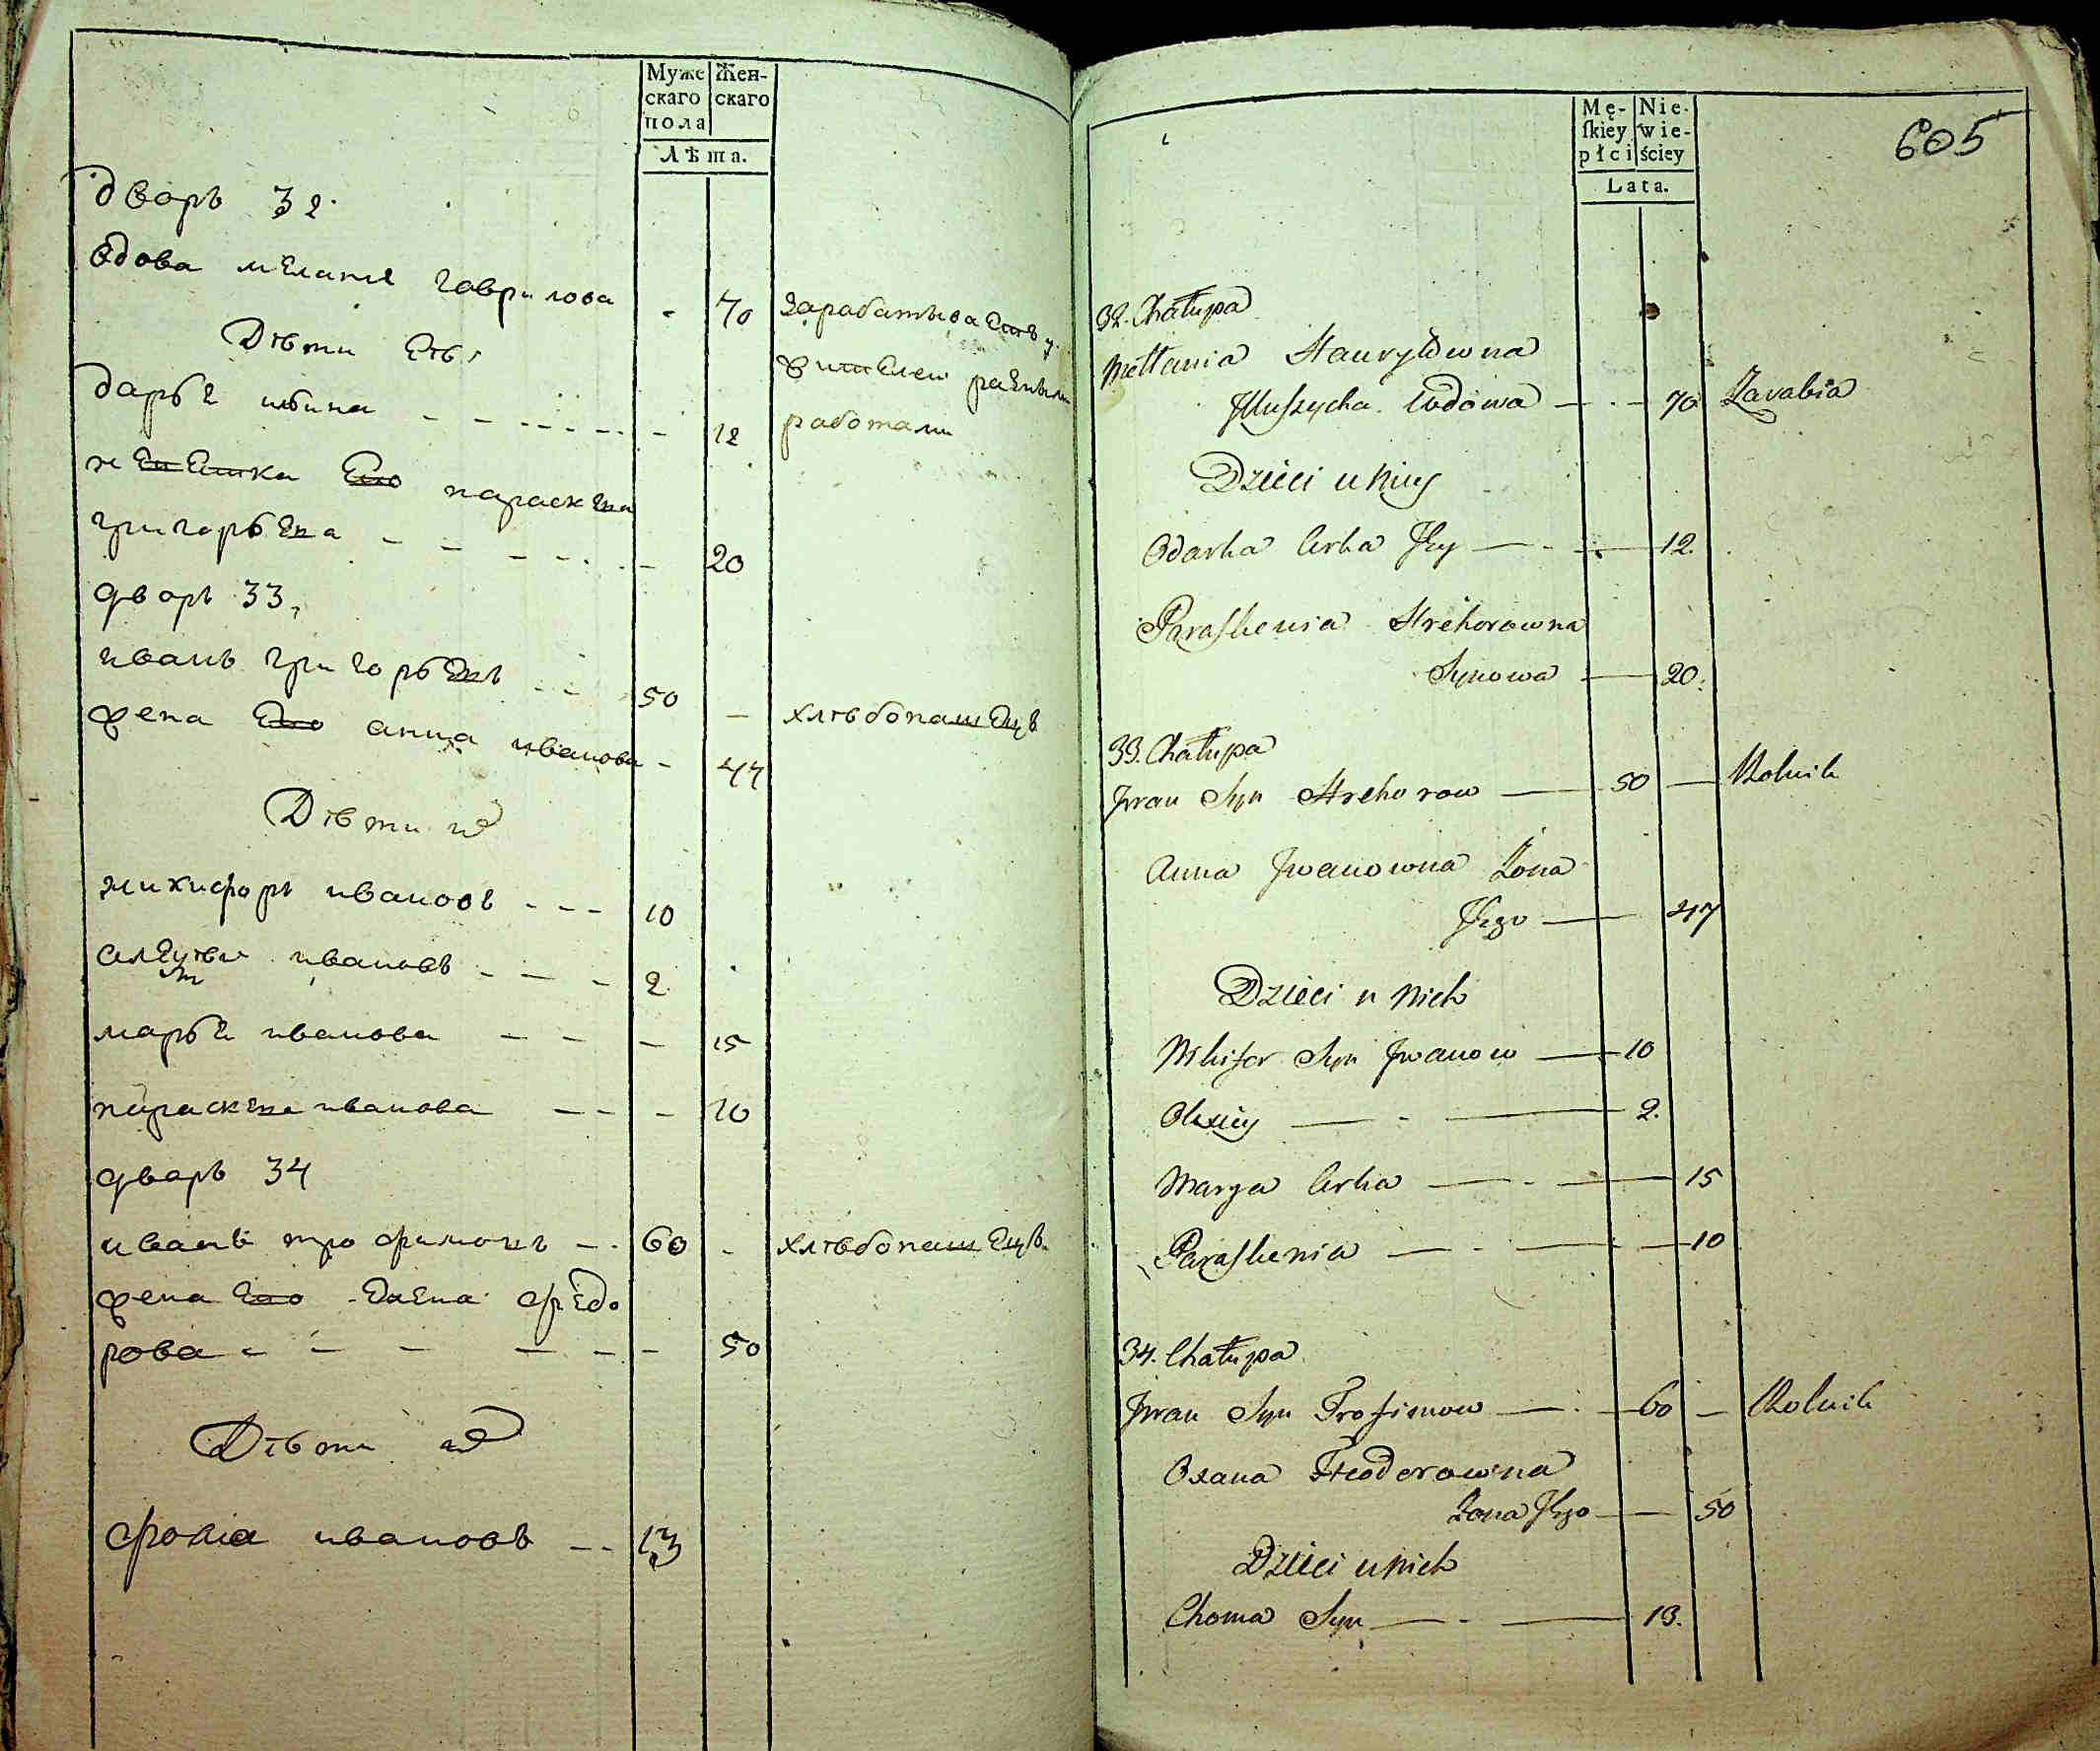 Муже Жен-
скаго скаго
пола
Лѣта.
дворъ 32
вдова меланя гаврилова - 70 зарабатываетъ у
жителеи разными
работами
Дѣти еѣ
дарья ильина - - - 12
невестка ево параскева
григорьева - - - 20
дворъ 33
иванъ григорьевъ - - 50 - хлѣбопашецъ
жена ево анна иванова - 47
Дѣти их
никифоръ ивановъ - - - 10
алеѯѣи ивановъ - - - 2
марья иванова - - - 15
параскева иванова - - - 10
дворъ 34
иванъ трофимовъ - - 60 - хлѣбопашецъ
жена ево федо
рова - - - - - 50
Дѣти их
фома ивановъ - - 13
605
Mę- Nie-
ſkiey wie-
płci ściey
Lata.
32. Chałupa
Mełania Hauryłowna
Wdowa — 70 Zarabia
Dzieci u Niey
Odarka Corka Jey — 12.
Paraskewia Hrehorowna
Synowa — 20.
33. Chałupa
Jwan Syn Hrehorow — 50 — Rolnik
Anna Jwanowna Żona
Jego — 47
Dzieci u Nich
Nikifor Syn Jwanow — 10
Olexiey — 2.
Marya Corka — 15
Paraskewia — 10
34. Chałupa
Jwan Syn Trofimow — 60 — Rolnik
Oxana Fteodorowna
Żona Jego — 50
Dzieci u Nich
Choma Syn — 13.